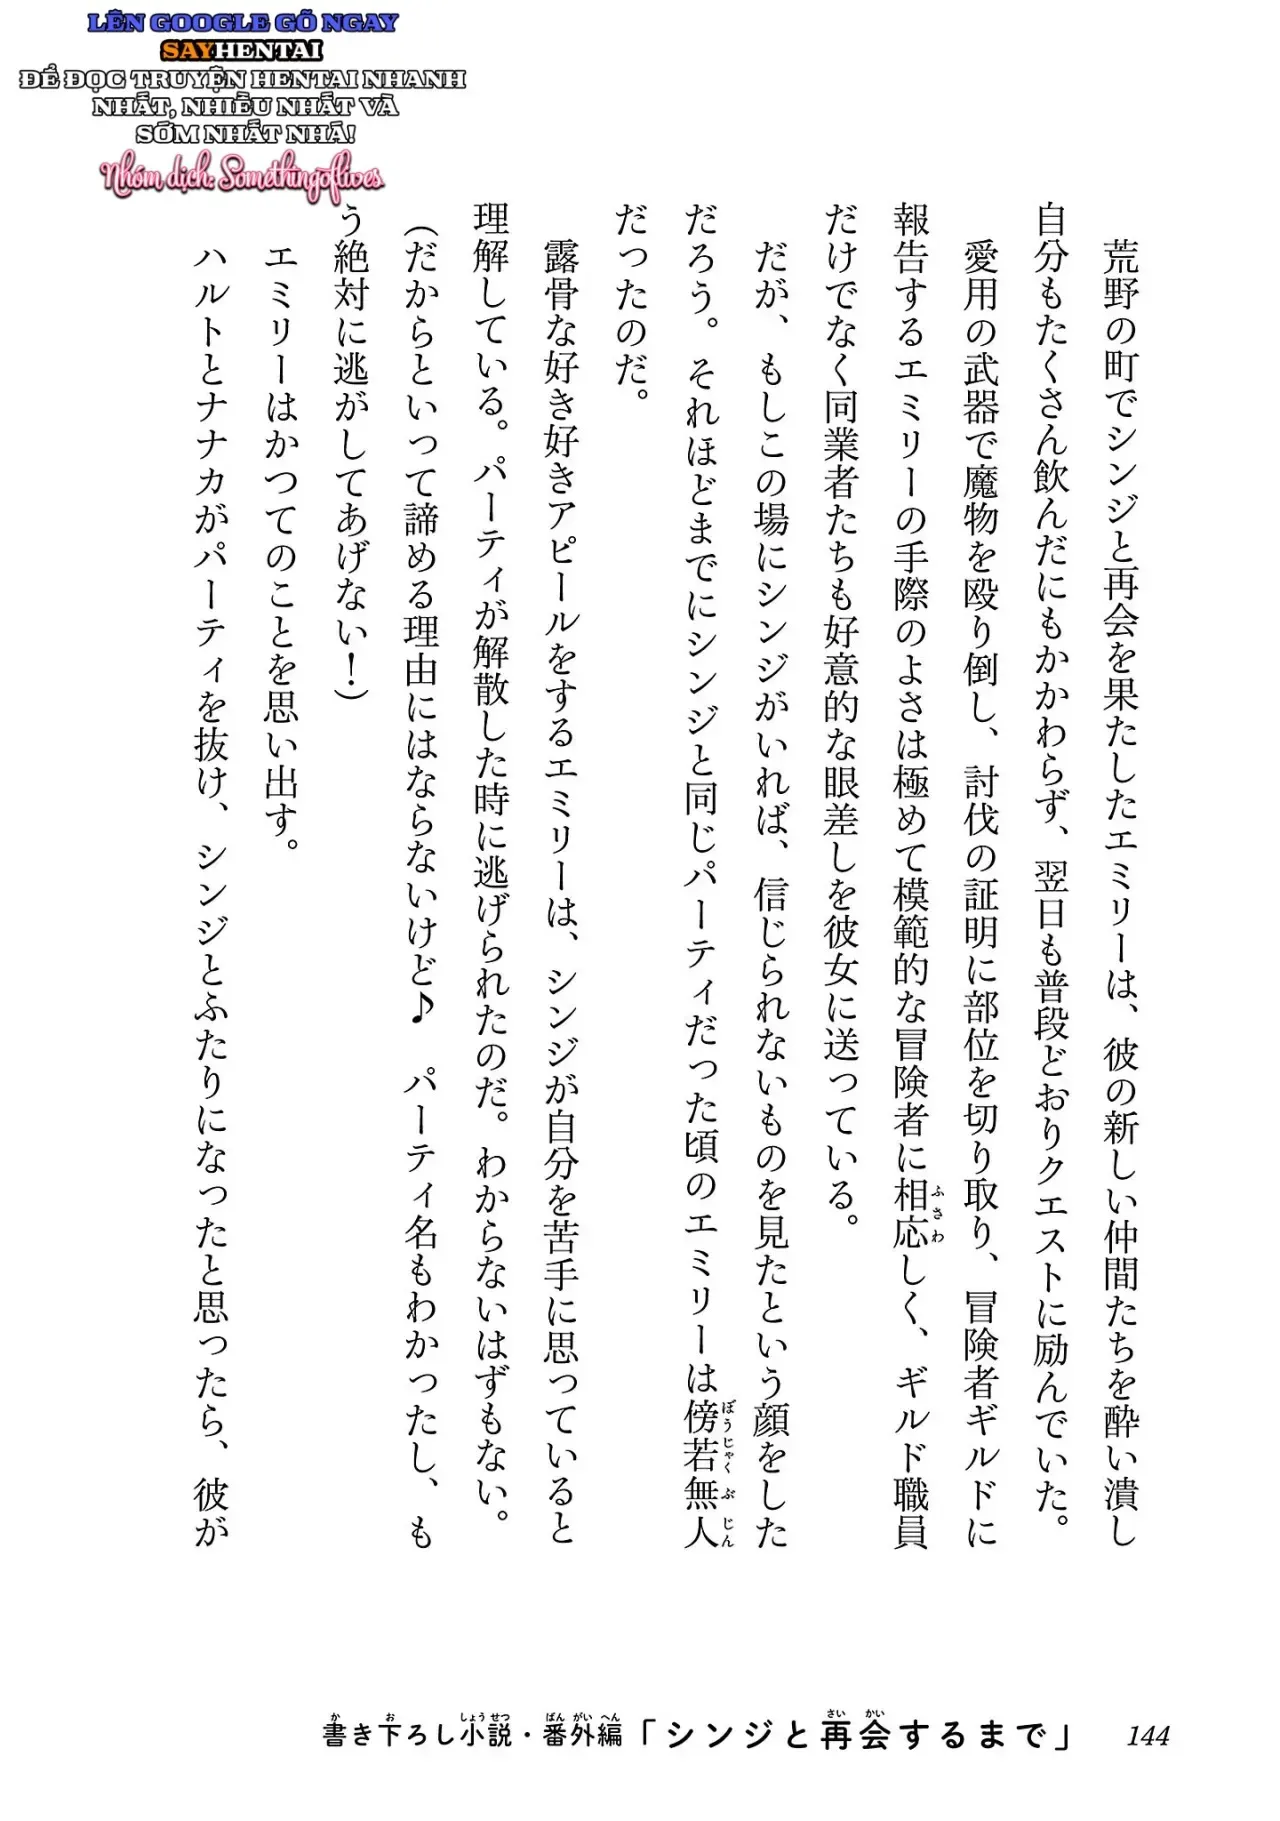 LÊN GOOGLE GÕ NGAY
SAYHENTAI
ĐỂ ĐỌC TRUYỆN HENTAI NHANH
NHẤT, NHIỀU NHẤT VÀ
SỚM NHẤT NHÁ!
Nhóm dịch: Somethingoflives
荒野の町でシンジと再会を果たしたエミリーは、彼の新しい仲間たちを酔い潰し
自分もたくさん飲んだにもかかわらず、翌日も普段どおりクエストに励んでいた。
愛用の武器で魔物を殴り倒し、討伐の証明に部位を切り取り、冒険者ギルドに
報告するエミリーの手際のよさは極めて模範的な冒険者に相応しく、ギルド職員
ふさわ
だけでなく同業者たちも好意的な眼差しを彼女に送っている。
だが、もしこの場にシンジがいれば、信じられないものを見たという顔をした
だろう。それほどまでにシンジと同じパーティだった頃のエミリーは傍若無人
ぼうじゃくぶじん
だったのだ。
露骨な好き好きアピールをするエミリーは、シンジが自分を苦手に思っていると
理解している。パーティが解散した時に逃げられたのだ。わからないはずもない。
(だからといって諦める理由にはならないけど♪　パーティ名もわかったし、も
う絶対に逃がしてあげない！)
エミリーはかつてのことを思い出す。
ハルトとナナカがパーティを抜け、シンジとふたりになったと思ったら、彼が
か お しょうせつ ばんがいへん さいかい
書き下ろし小説・番外編「シンジと再会するまで」 144